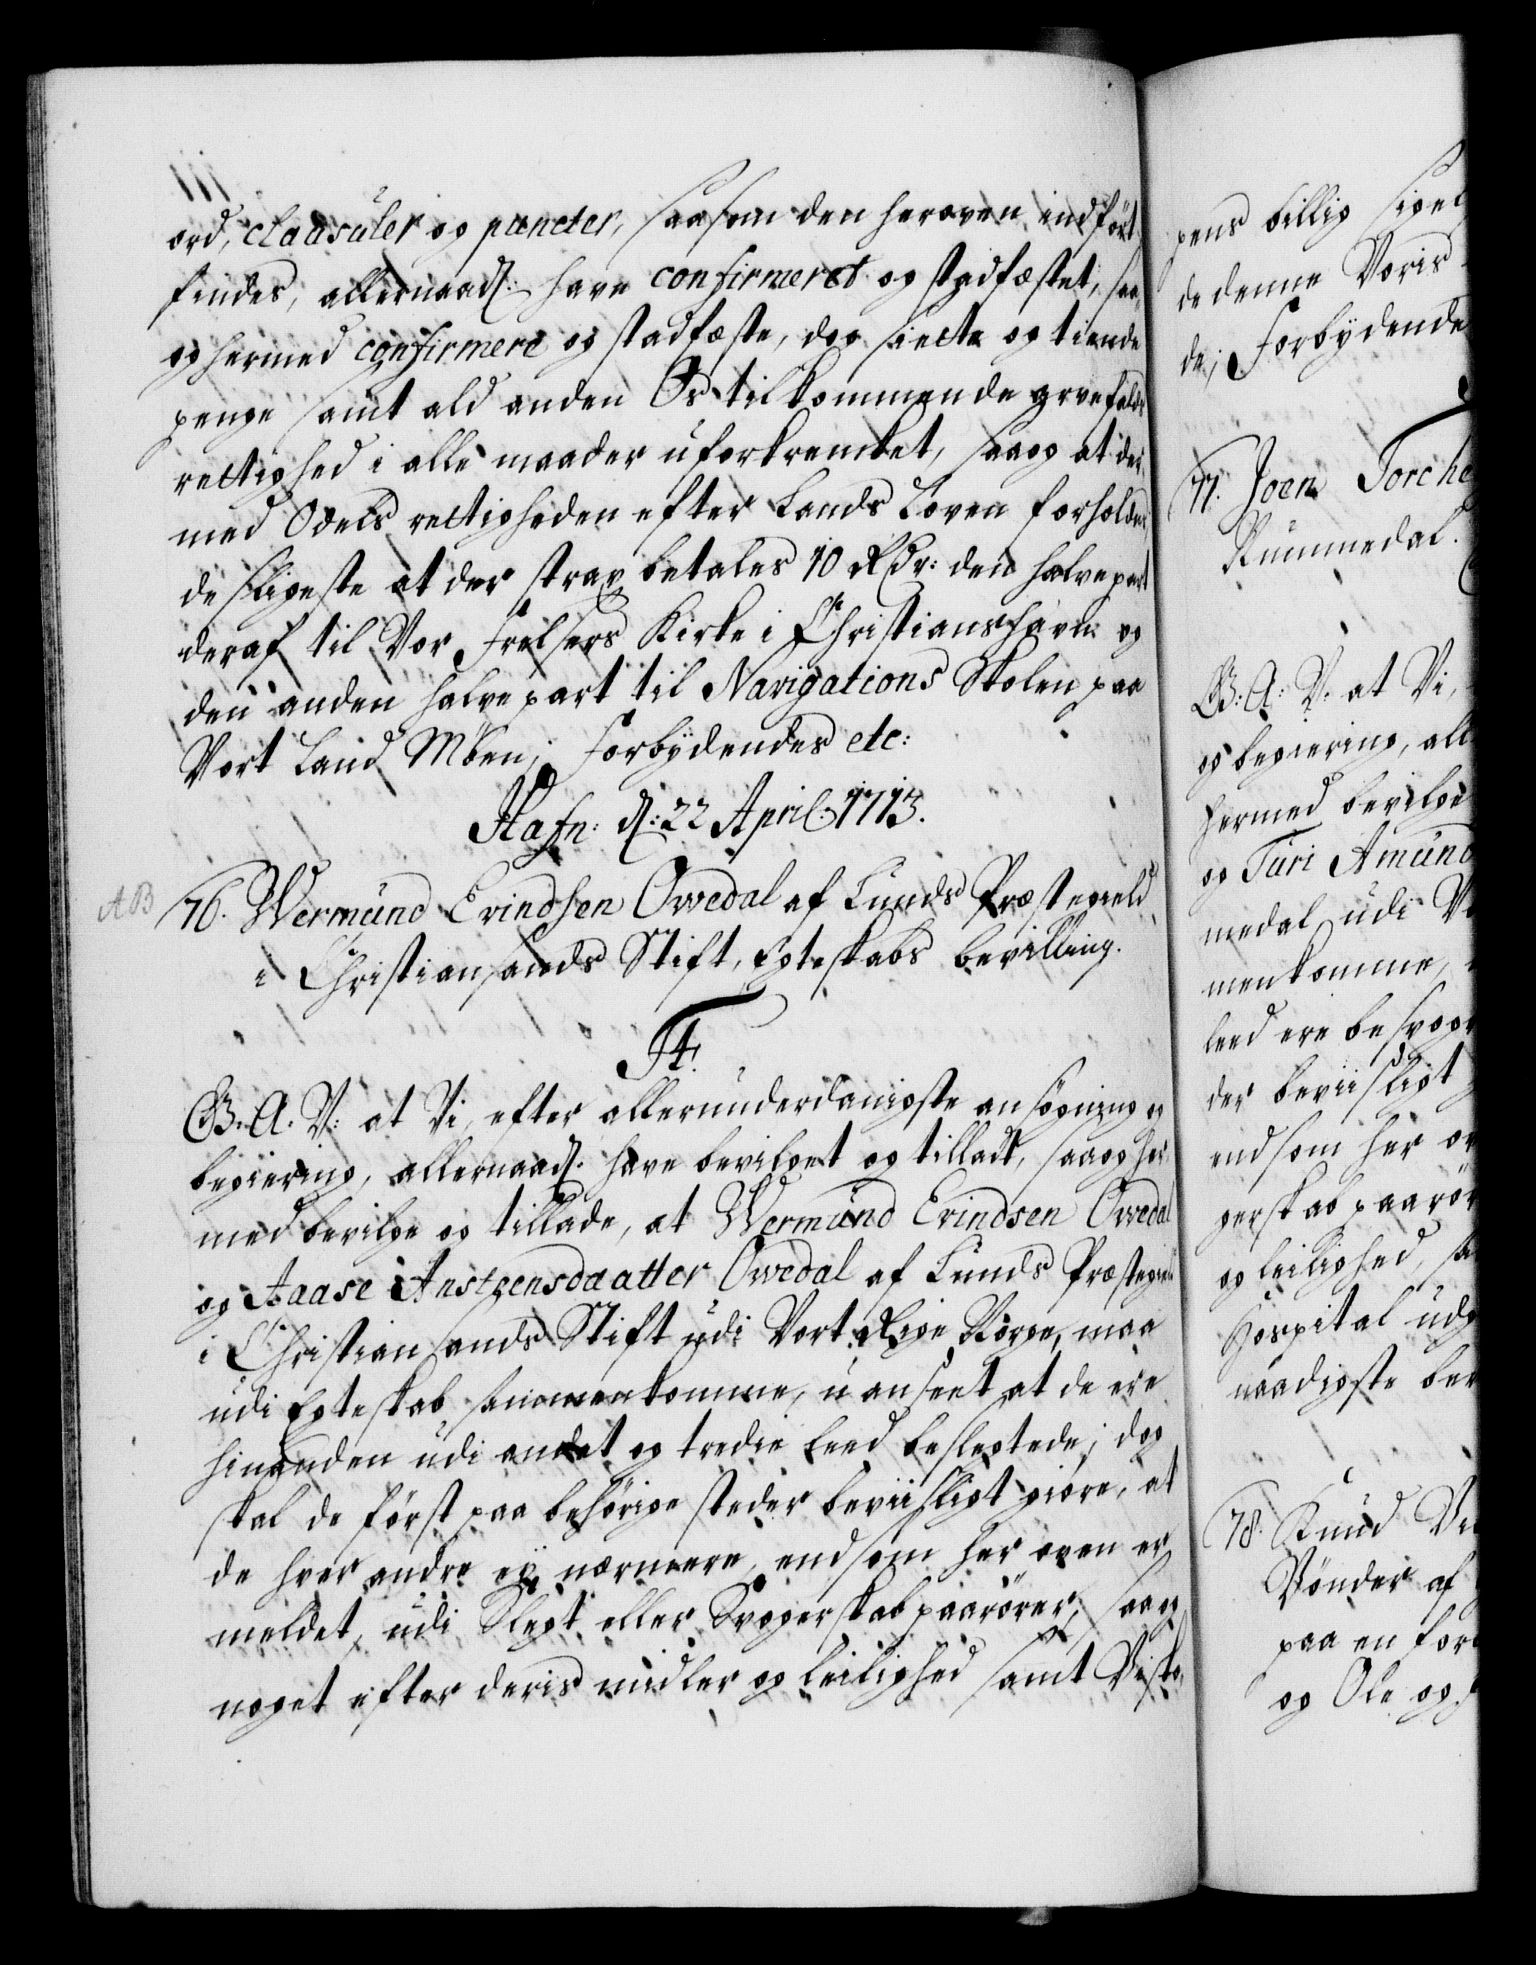 ord, claasuler og puncter, saasom den heroven indført
findes, allernaad: have confirmeret og stadfæstet, saa
og hermed confirmere og stadfæste, dog siette og tiende
penge samt ald anden Os tilkommende arvefalds
rettighed i alle maader uforkrenket, saa og at der
med Odels rettigheden efter Lands Loven forholdes,
desligeste at der strax betales 10 Rdr: den halvepart
deraf til Vor Frelsers Kirke i Christianshavn og
den anden halvepart til Navigations Skolen paa
Vort Land Möen; Forbydendes etc:
Hafn: d: 22 April: 1713.
AB
76. Wermund Evindsen Owedal af Lunds Præstegield
i Christiansands Stift, Egteskabs bevilling.
F4.
G: A: V: at Vi, efter allerunderdanigste ansøgning og
begiering, allernaad: have bevilget og tilladt, saa og her
med bevilge og tillade, at Wermund Evindsen Owedal
og Aaase Ansteensdaatter Owedal af Lunds Præstegield
i Christiansands Stift udi Vort Rige Norge, maa
udi Egteskab sammenkomme, uanseet at de ere
hinanden udi andet og tredie Leed beslegtede; dog
skal de først paa behörige steder beviisligt giøre, at
de hver andre ey nærmere, end som her oven er
meldet, udi Slegt eller Svogerskab paarører; saa og
noget efter deris midler og leilighed samt Bisko,
pens billig sigel
de denne Voris
de; Forbydende
77. Joen Torche
Nummedal.
G: A: V: at Vi,
og begiering, all
hermed bevilge
og Turi Amund
medal udi V
menkomme,
leed ere besvogr
der beviisligt
end som her ov
gerskab paarör
og leilighed, sa
Hospital udg
naadigste bev
78. Knud Ve
Bönder af
paa en for
og Ole og